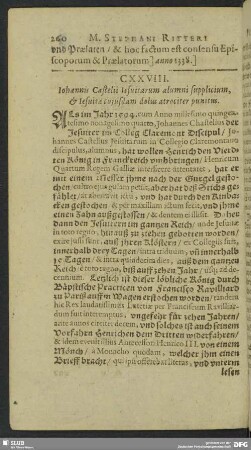 260 M. STEPHANI RITTERI
vnd Prælaten / & hoc factum est consensu Epi-
scoporum & Prælatorum] anno 1338.]
CXXVIII.
Iohannis Castelii Iesuitarum alumni supplicium,
& Iesuita cujusdam dolus atrociter punitus.
ALs im Jahr 1594. cum Anno millesimo quingen-
tesimo nonagesimo quarto, Johannes Castelius der
Jesuiter im Colleg Clarement Discipul / Jo-
hannes Castelius Jesuitarum in Collegio Claremontano
discipulus, alumnus, hat wollen Henrich den Vierd-
ten König in Franckreich vmbbringen / Henricum
Quartum Regem Galliæ hat er
mit einem Messer jhme nach der Gurgel gesto-
chen / aber hat deß Stichs ge-
fählet / vnd hat durch den Kinba-
cken gestochen / vnd jhme
einen Zahn außgestossen / & dentem ei D. hat
dann den Jesuitern im gantzen Reich / unde Jesuitis
in toto regno, biß auff sie ziehen gebotten worden /
exire jussi sunt, auß jhren Klöstern / ex Collegiis suis,
innerhalb drey Tagen / intra triduum, vñ innerhalb
15. Tagen / & intra quindecim dies, auß dem gantzen
Reich / è toto regno, biß auff zehen Jahr / usq; ad de-
cennium. Letzlich ist dieser löbliche König durch
Bäpstische Practicken von Francisco Ravilliard
zu Pariß auffm Wagen erstochen worden / tandem
hic Rex laudatissimus Lutetiæ per Franciscum Ravilliar-
dum fuit interemptus, vngefehr für zehen Jahren /
ante annos circiter decem, vnd solches ist auch seinem
Vorfahren Henrichen dem Dritten widerfahren /
& idem evenit illius Antecessori Henrico III. von einem
Mönch / à Monacho quodam, welcher jhm einen
Brieff bracht / qui ipsi offerebat literas, vnd vnterm
lesen
SLUB